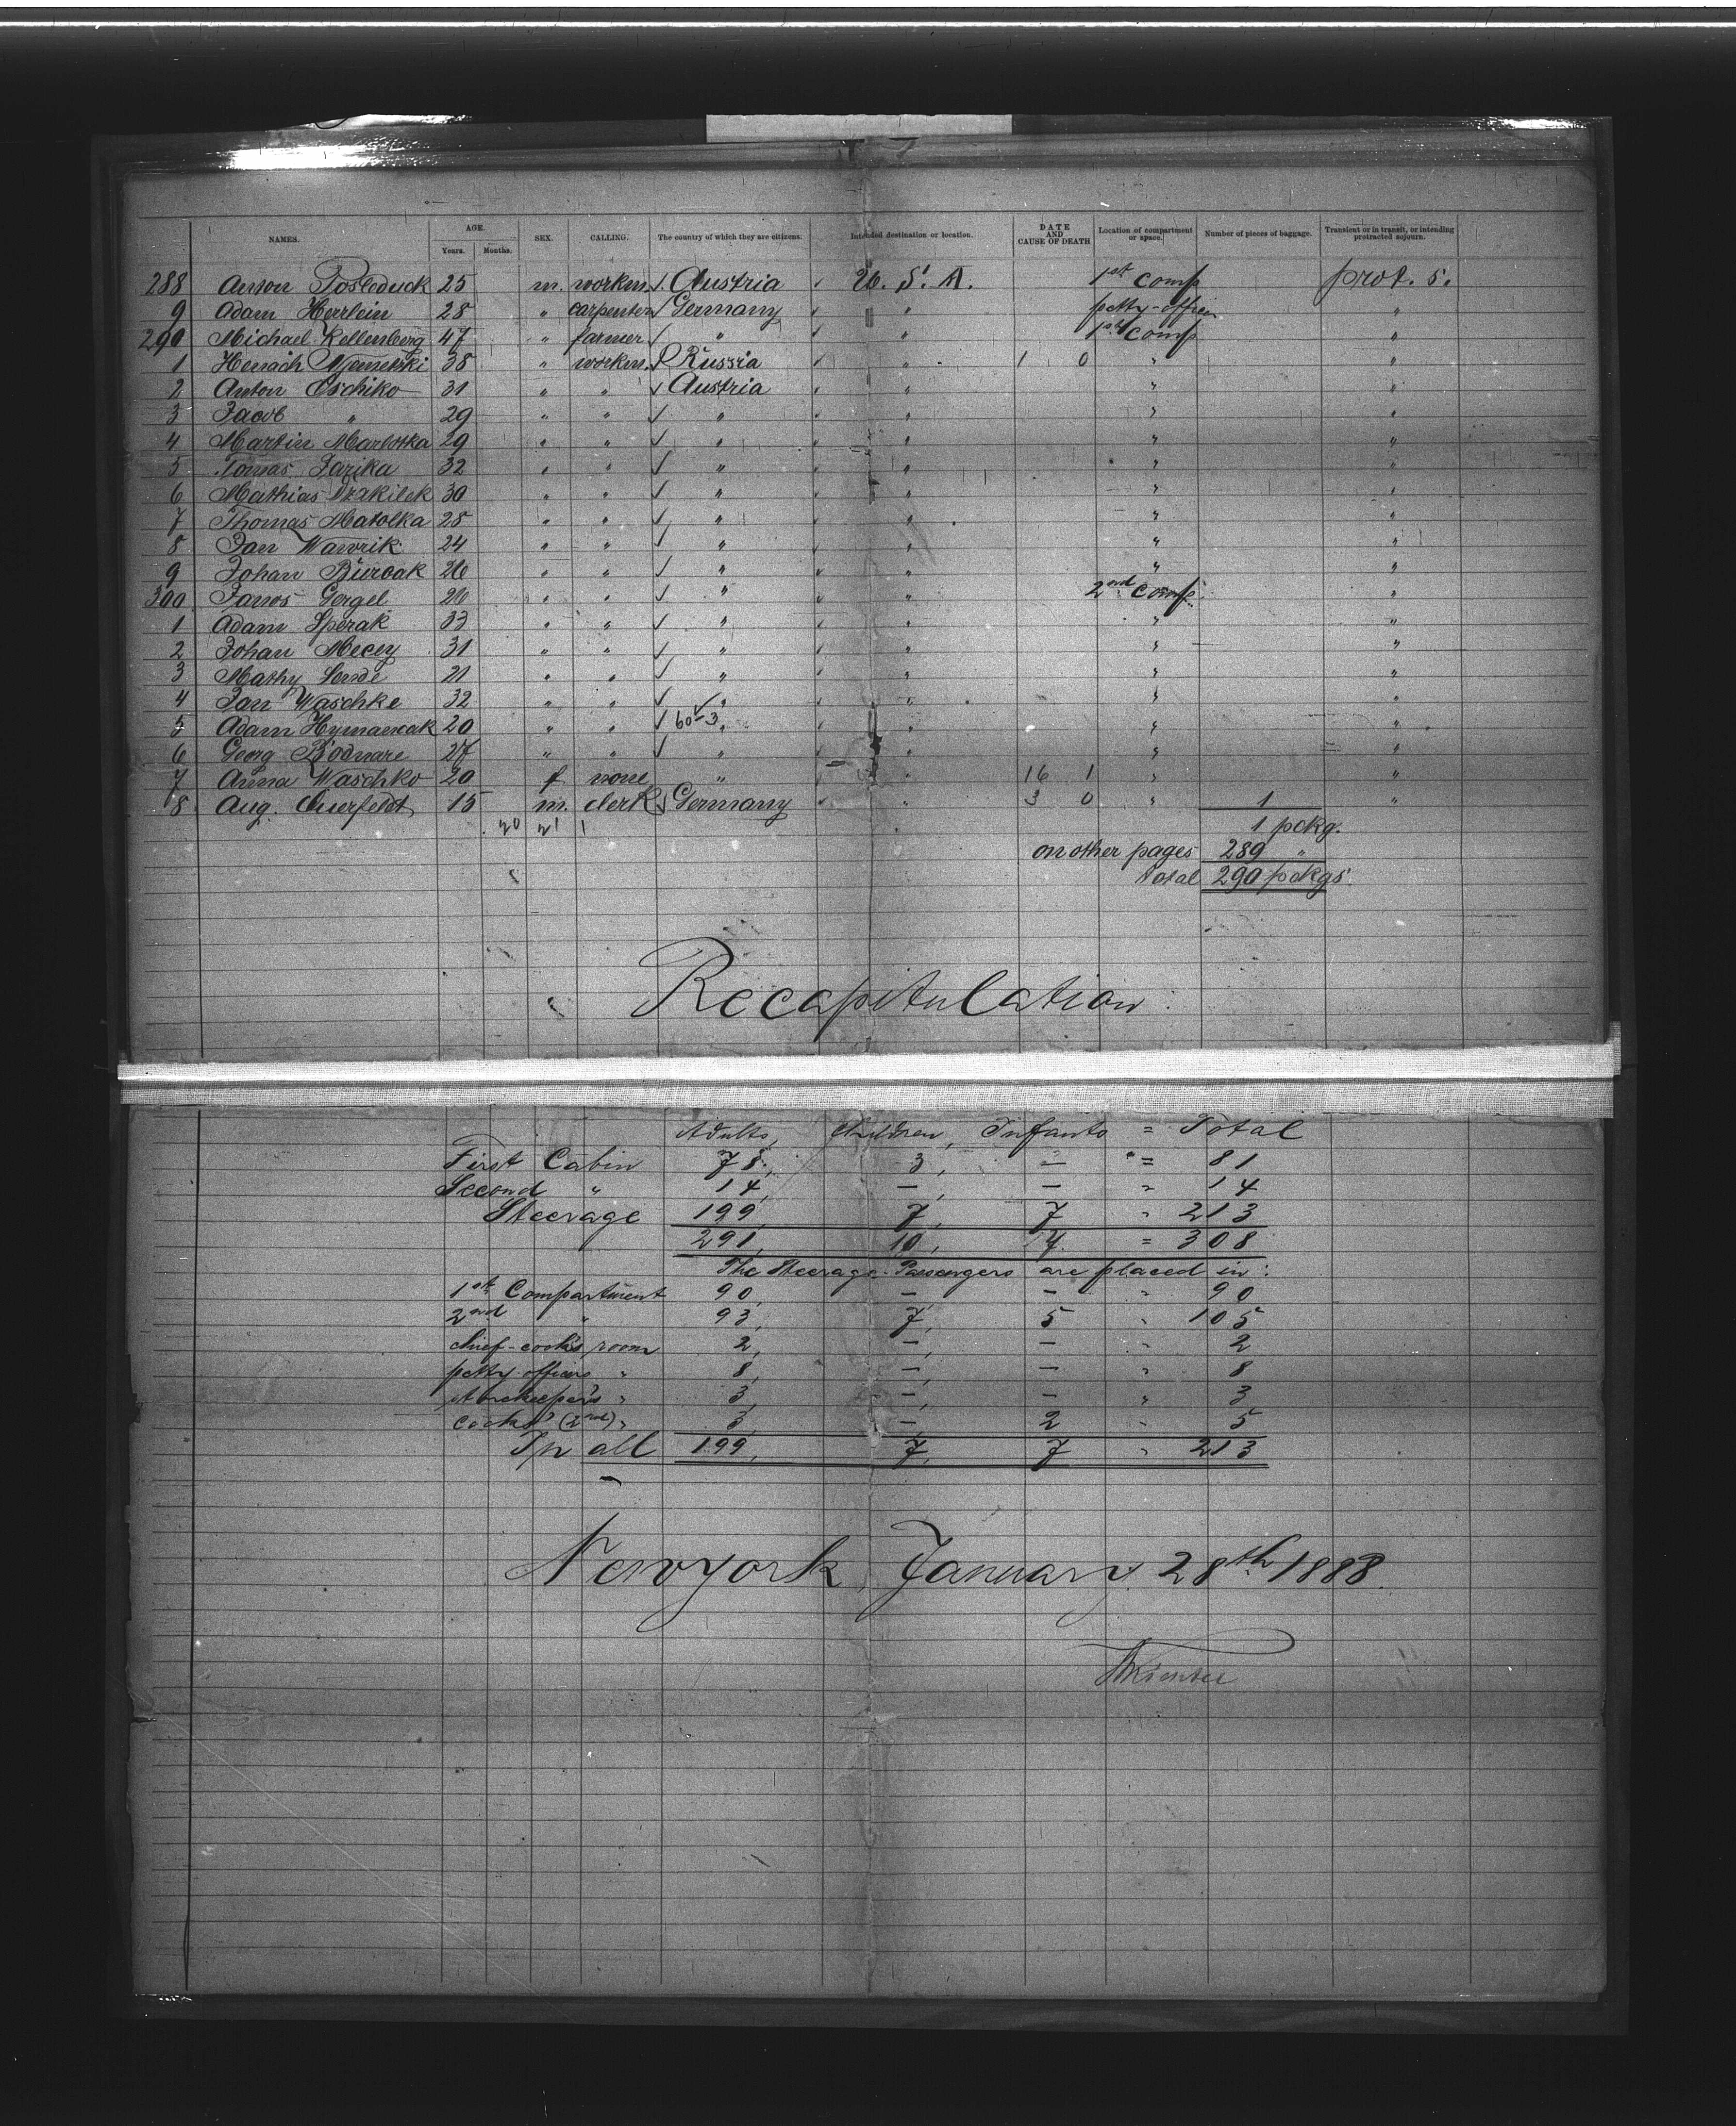 NAMES. AGE. Years. Months. SEX. CALLING. The country of which they are citizens. Intended destination or location. DATE AND CAUSE OF DEATH Location of compartment or space. Number of pieces of baggage. Transient or in transit, or intending protracted sojourn.
288 Anton 25 m. workm. Austria U. S. A. 1st comp prot. s.
9 Adam Herrlein 28 " carpenter Germany " petty-officer "
290 Michael Kellenberg 47 " farmer " " 1st comp "
1 38 " workm. Russia " 1 0 " "
2 Anton Oschiko 31 " " Austria " " "
3 Jacob " 29 " " " " " "
4 Martin 29 " " " " " "
5 Tomas Jarika 32 " " " " " "
6 Mathias 30 " " " " " "
7 Thomas Matolka 28 " " " " " "
8 Jan Wawrik 24 " " " " " "
9 Johan 26 " " " " " "
300 Janos Gergel 26 " " " " 2nd comp. "
1 Adam Sperak 33 " " " " " "
2 Johan Mecey 31 " " " " " "
3 Mathy 21 " " " " " "
4 Jan Waschke 32 " " " " " "
5 Adam 20 " " 60-3 " " " "
6 Georg Bodnare 27 " " " " " "
7 Anna Waschko 20 f none " " 16 1 " "
8 Aug. 15 m. clerk Germany " 3 0 " 1 "
20 21 1 1 pckg.
on other pages 289 "
total 290 pckgs.
Recapitulation
Adults, Children, Infants = Total
First Cabin 78, 3, — " = 81
Second " 14, —, — " 14
Steerage 199, 7, 7 " 213
291, 10, 7 = 308
The Steerage-Passengers are placed in:
1st Compartment 90, — — " 90
2nd " 93, 7, 5 " 105
chief-cook's room 2, —, — " 2
petty officers " 8, —, — " 8
storekeeper's " 3, —, — " 3
cooks' (2nd) " 3, — 2 " 5
In all 199, 7, 7 " 213
Newyork January 28th 1888.